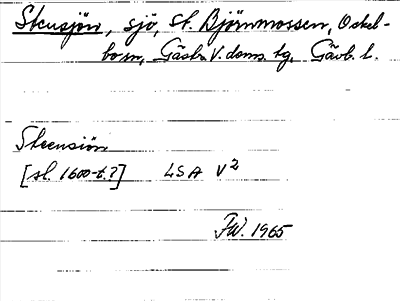 Stensjön, sjö, St. Björnmossen, Ockel-
bo sn, Gästr. V. doms. tg, Gävb. l.
Steensiön
[sl. 1600-t.?] LSA V2
FW. 1965